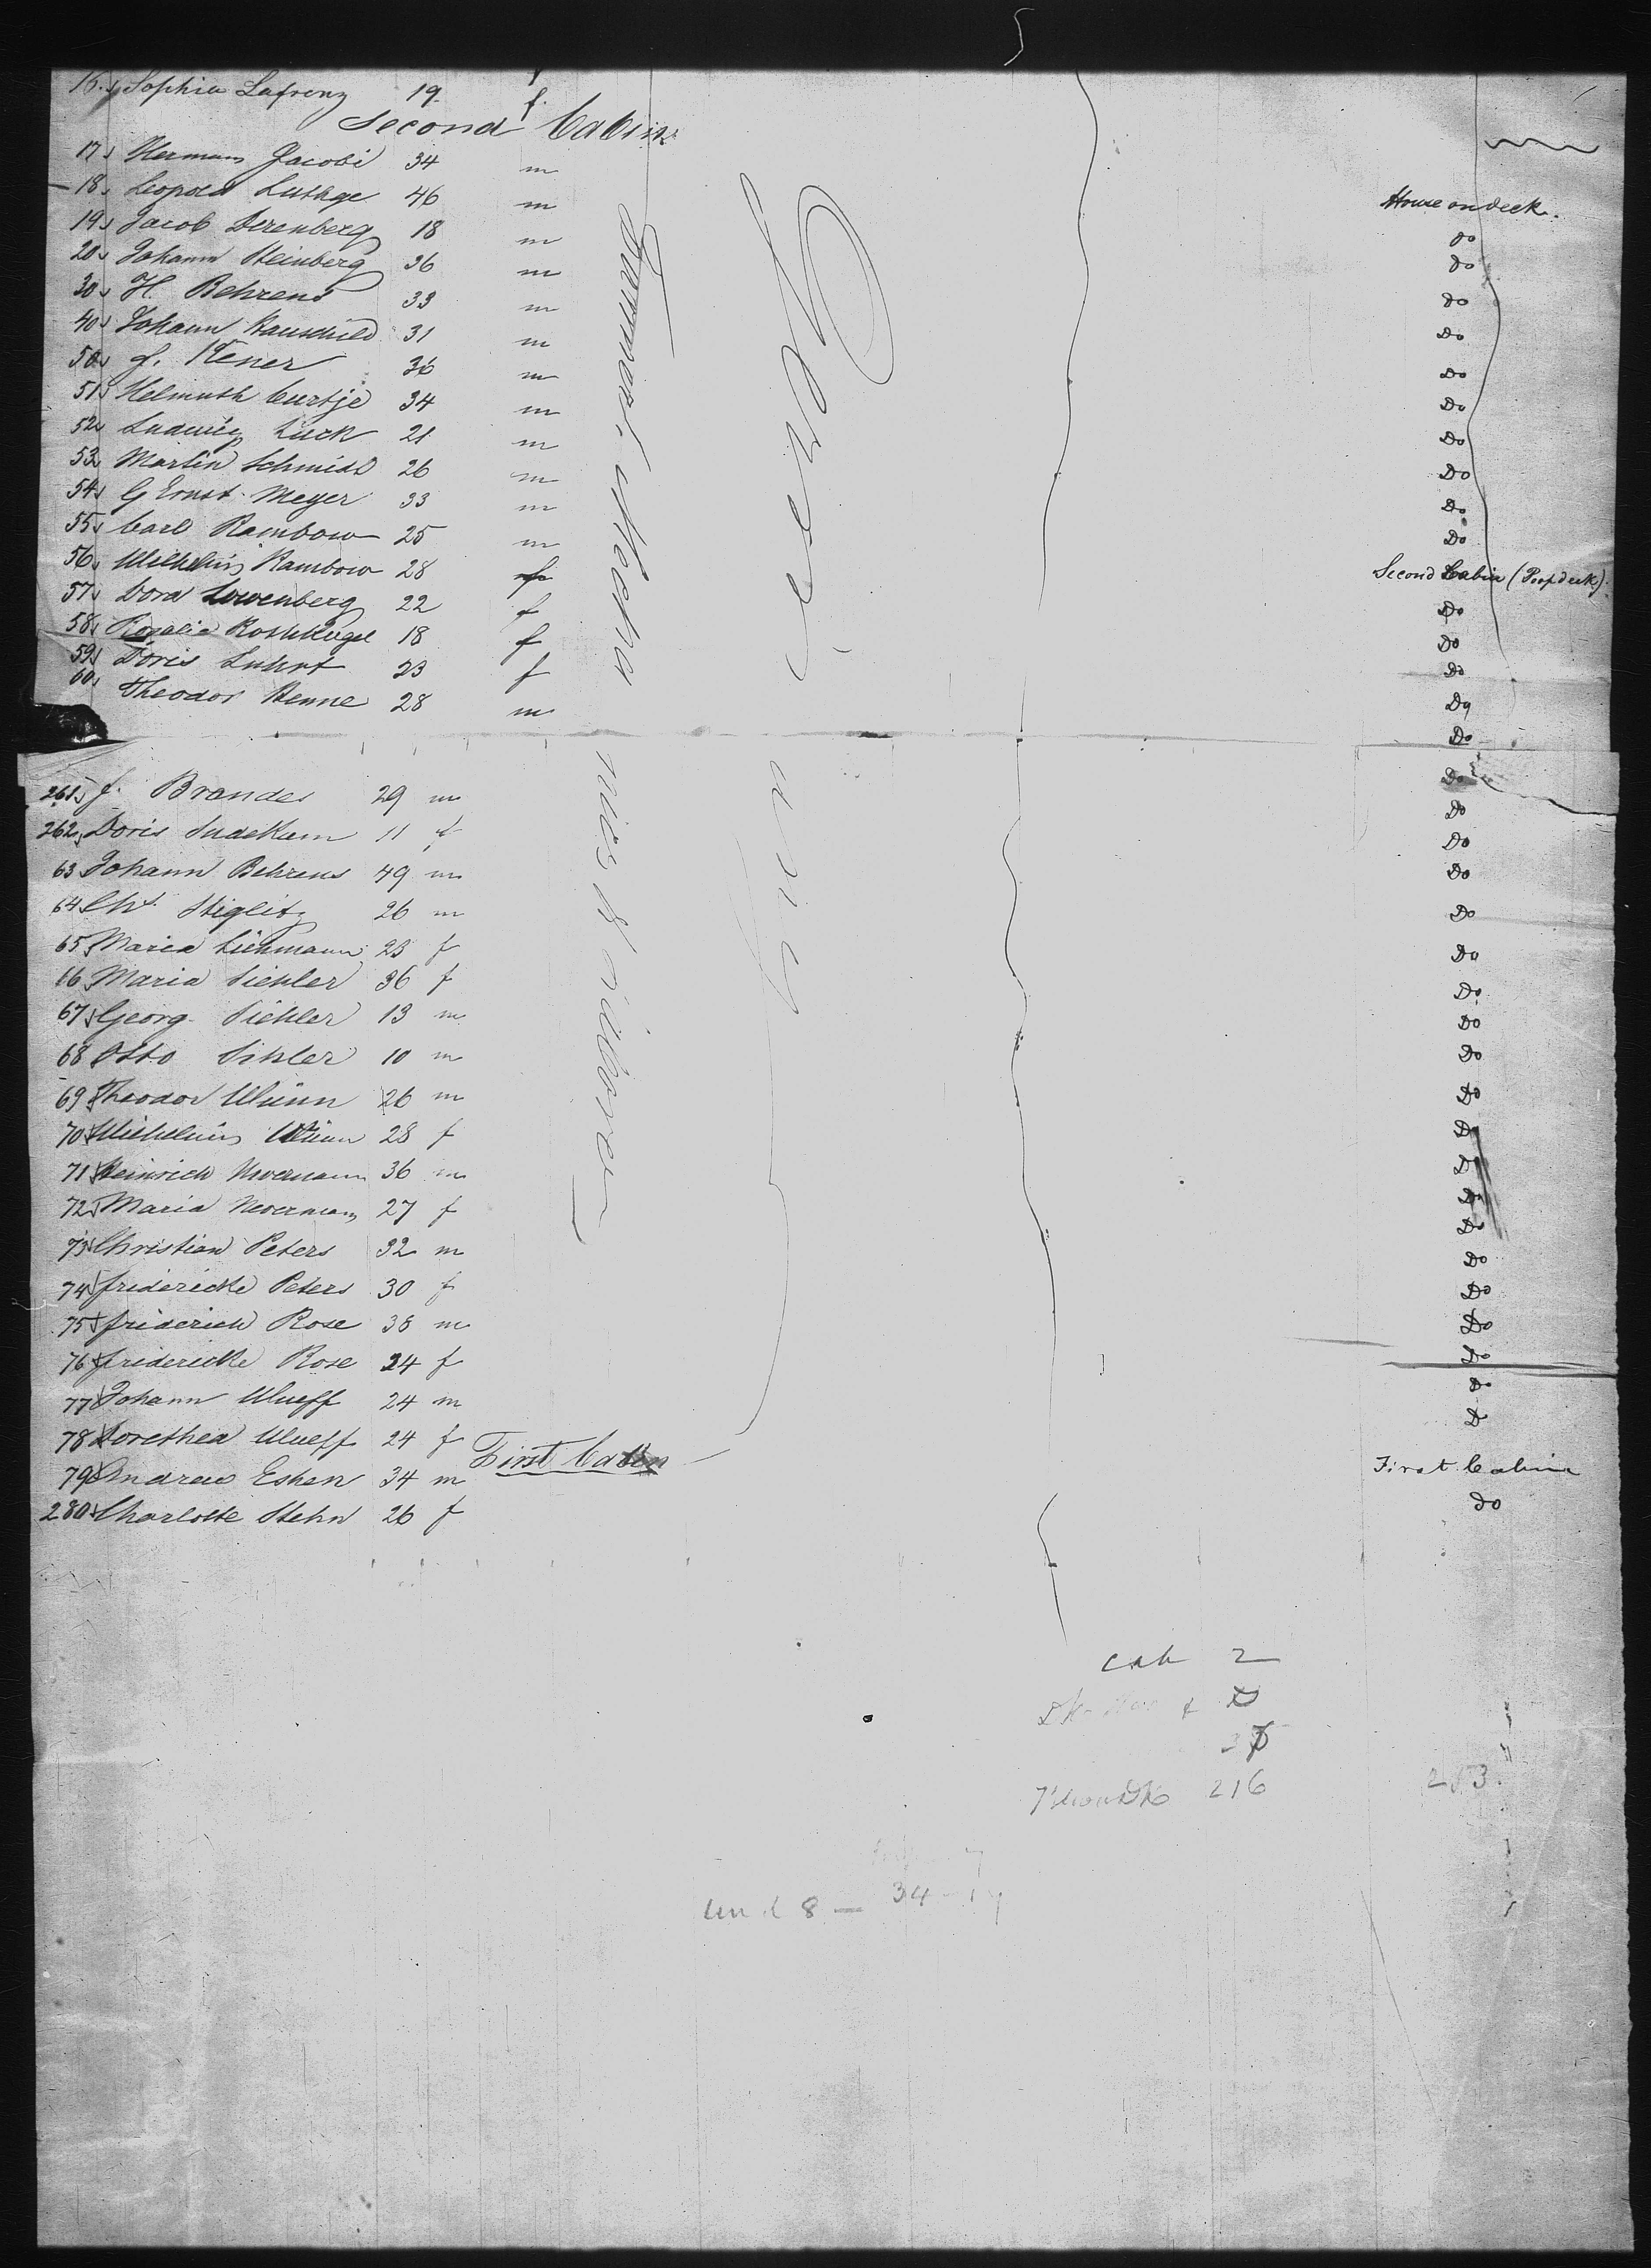 16. Sophia Lafrenz 19. f.
Second Cabin
17 Herman Jacobi 34 m
18. Leopold Luthge 46 m House on deck.
19 Jacob Derenberg 18 m do
20 Johann Steinberg 36 m do
30 H. Behrens 33 m do
40 Johann Hauschild 31 m Do
50 f. 36 m Do
51 Helmuth Curtje 34 m Do
52 Ludwig Luck 21 m Do
53 Martin Schmidt 26 m Do
54 G Ernst Meyer 33 m Do
55 Carl Rambow 25 m Do
56 Wilhelmis Rambow 28 f Second Cabin (Poop deck).
57 Dora Lowenberg 22 f Do
58 Rosalie Rothkugel 18 f Do
59 Doris Luhrt 23 f Do
60 Theodor Henne 28 m Do
Do
261 f. Brandes 29 m Do
262 Doris Sudekum 11 f Do
63 Johann Behrens 49 m Do
64 Cht. Stiglitz 26 m Do
65 Maria Liehmann 23 f Do
66 Maria Siehler 36 f Do
67 Georg Siehler 13 m Do
68 Otto Sihler 10 m Do
69 Theodor Wünn 26 m Do
70 Wilhelmis Wünn 28 f Do
71 Heinrich Nevermann 36 m Do
72 Maria Nevermann 27 f Do
73 Christian Peters 32 m Do
74 Fridericke Peters 30 f Do
75 Friderich Rose 38 m Do
76 Fridericke Rose 24 f Do
77 Johann Wueff 24 m Do
78 Dorethea Wueff 24 f
First Cabin
79 Andrew Eshen 34 m First Cabin
280 Charlotte Stehn 26 f do
Farmers, Mechanics & Laborers
Germany
cab 2
216
253
34